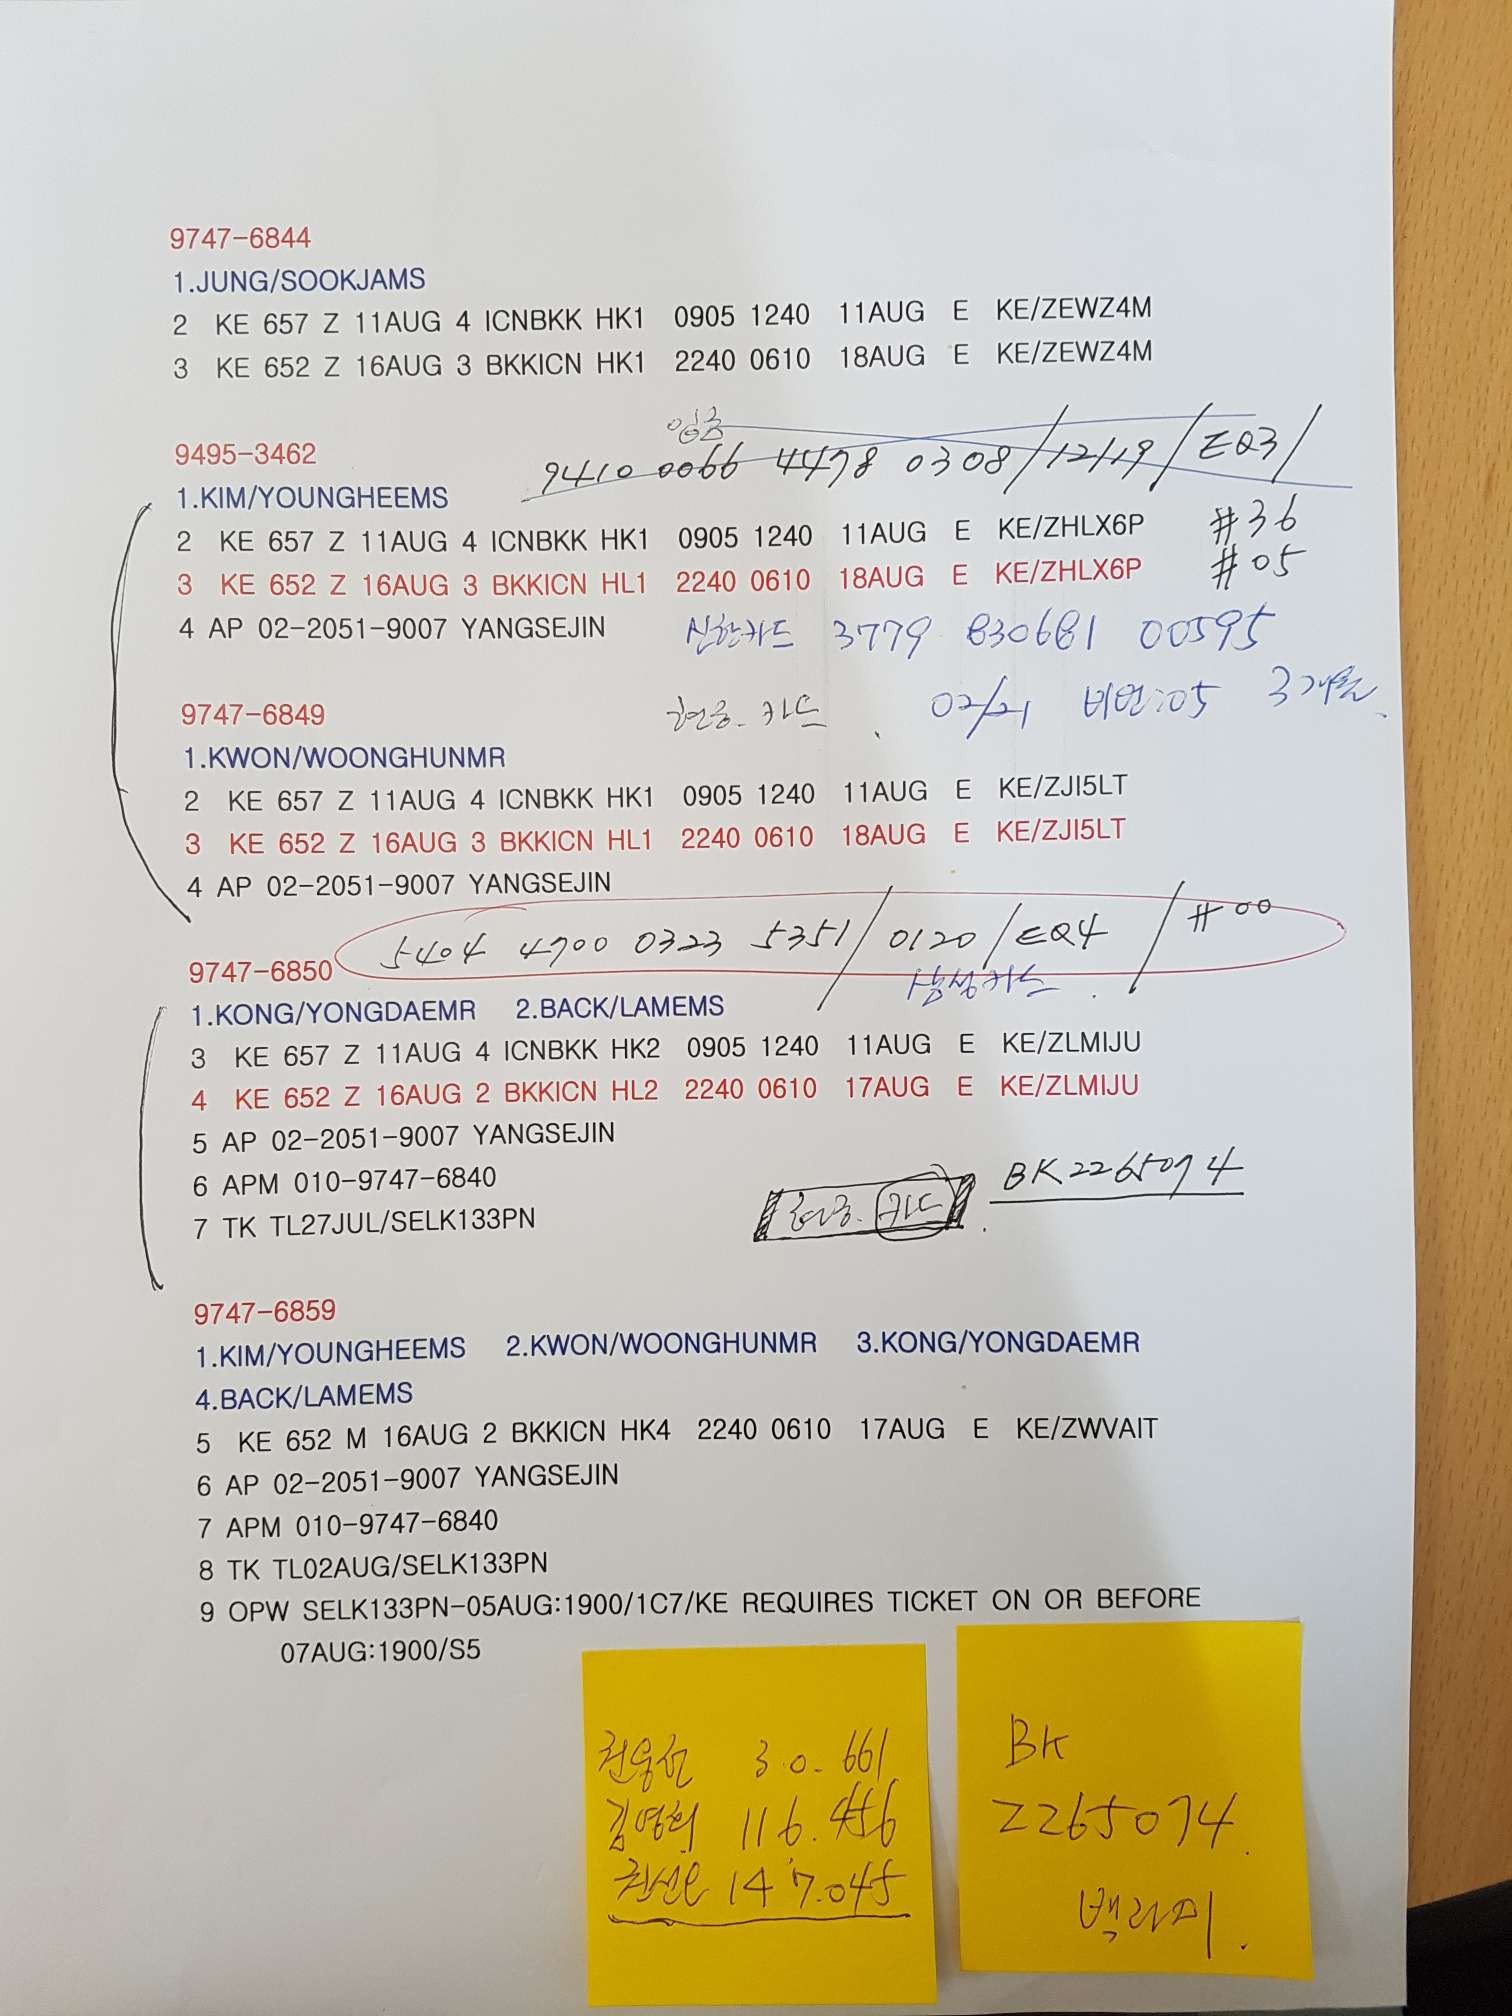 9747-6844
1.JUNG/SOOKJAMS
2 KE 657 Z 11AUG 4 ICNBKK HK1 0905 1240 11AUG E KE/ZEWZ4M
3 KE 652 Z 16AUG 3 BKKICN HK1 2240 0610 18AUG E KE/ZEWZ4M
9495-3462
9410 0066 4478 0308/12/19/EQ3/
1.KIM/YOUNGHEEMS
2 KE 657 Z 11AUG 4 ICNBKK HK1 0905 1240 11AUG E KE/ZHLX6P #36
3 KE 652 Z 16AUG 3 BKKICN HL1 2240 0610 18AUG E KE/ZHLX6P #05
4 AP 02-2051-9007 YANGSEJIN 신한카드 3779 830681 00595
9747-6849 현웅. 카드 02/21 비번:05 3개월.
1.KWON/WOONGHUNMR
2 KE 657 Z 11AUG 4 ICNBKK HK1 0905 1240 11AUG E KE/ZJI5LT
3 KE 652 Z 16AUG 3 BKKICN HL1 2240 0610 18AUG E KE/ZJI5LT
4 AP 02-2051-9007 YANGSEJIN
5404 4700 0323 5351/0120/EQ4/#00
9747-6850 삼성카드.
1.KONG/YONGDAEMR 2.BACK/LAMEMS
3 KE 657 Z 11AUG 4 ICNBKK HK2 0905 1240 11AUG E KE/ZLMIJU
4 KE 652 Z 16AUG 2 BKKICN HL2 2240 0610 17AUG E KE/ZLMIJU
5 AP 02-2051-9007 YANGSEJIN
6 APM 010-9747-6840 BK2265074
7 TK TL27JUL/SELK133PN 현웅. 카드.
9747-6859
1.KIM/YOUNGHEEMS 2.KWON/WOONGHUNMR 3.KONG/YONGDAEMR
4.BACK/LAMEMS
5 KE 652 M 16AUG 2 BKKICN HK4 2240 0610 17AUG E KE/ZWVAIT
6 AP 02-2051-9007 YANGSEJIN
7 APM 010-9747-6840
8 TK TL02AUG/SELK133PN
9 OPW SELK133PN-05AUG:1900/1C7/KE REQUIRES TICKET ON OR BEFORE
07AUG:1900/S5
권웅헌 30.661
김영희 116.456
147.045
BK
2265074.
백라미.